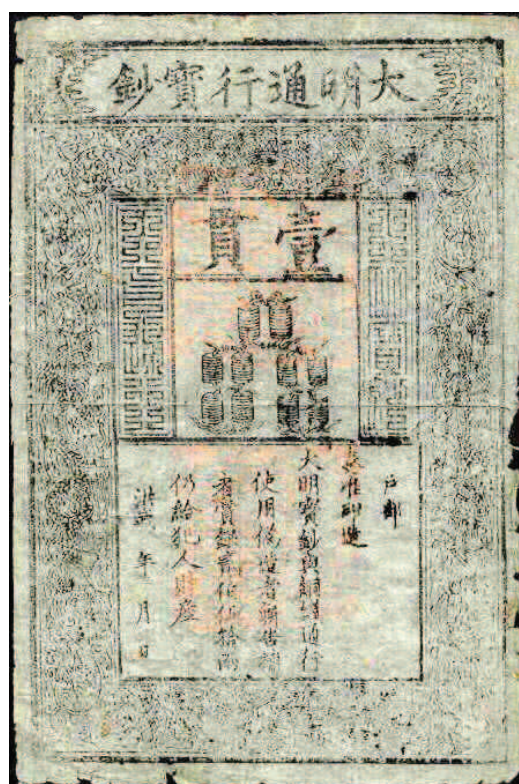 大明通行寶鈔
壹貫
戶部
奏准印造
大明寶鈔與銅錢通行
使用偽造者斬告捕
者賞銀貳佰伍拾兩
仍給犯人財產
洪武 年 月 日